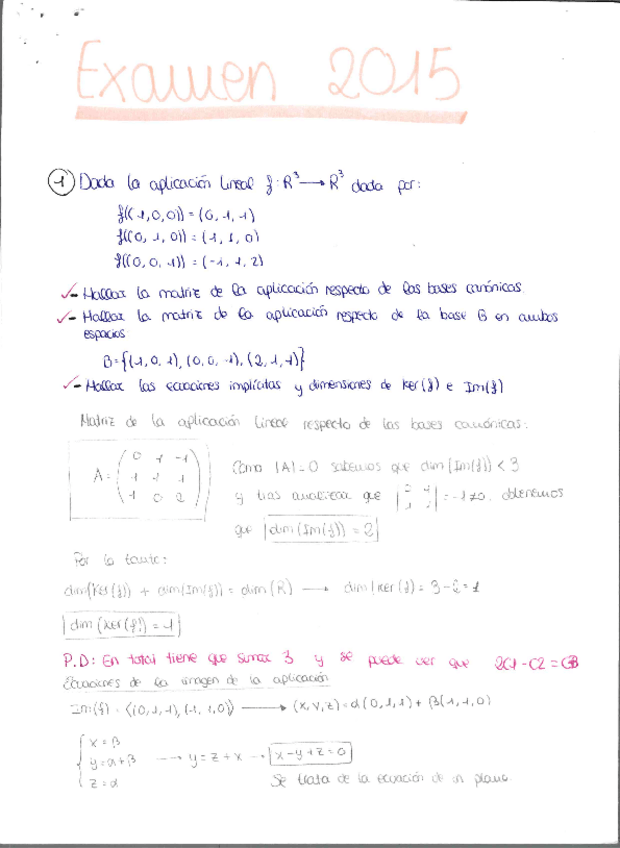 Examen 2015
1 Dada la aplicación lineal f: R³ → R³ dada por:
f((1,0,0)) = (0,1,1)
f((0,1,0)) = (1,1,0)
f((0,0,1)) = (-1,1,2)
✓- Hallar la matriz de la aplicación respecto de las bases canónicas.
✓- Hallar la matriz de la aplicación respecto de la base B en ambos
espacios:
B={(1,0,1),(0,0,1),(2,1,1)}
✓- Hallar las ecuaciones implícitas y dimensiones de Ker(f) e Im(f)
Matriz de la aplicación lineal respecto de las bases canónicas:
A = (0 1 -1
1 1 1
1 0 2)
Como |A|=0 sabemos que dim(Im(f)) < 3
y tras analizar que = -1≠0, obtenemos
que dim(Im(f)) = 2
Por lo tanto:
dim(Ker(f)) + dim(Im(f)) = dim(R) → dim(Ker(f)) = 3-2=1
dim(Ker(f)) = 1
P.D: En total tiene que sumar 3 y se puede ver que 2C1-C2=C3
Ecuaciones de la imagen de la aplicación
Im(f) = ⟨(0,1,1),(1,1,0)⟩ → (x,y,z)=α(0,1,1)+β(1,1,0)
x=β
y=α+β → y=z+x → x-y+z=0
z=α Se trata de la ecuación de un plano.